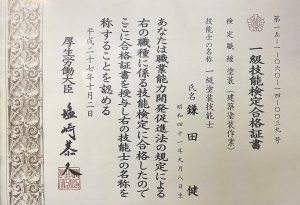 第一五-一-一〇六〇-一四-〇〇三九号
一級技能検定合格証書
検定職種 塗装(建築塗装作業)
技能士の名称 一級塗装技能士
氏名 鎌田 健
昭和四十一年九月八日生
あなたは職業能力開発促進法の規定による
右の職種に係る技能検定に合格したので
ここに合格証書を授与し右の技能士の名称を
称することを認める
平成二十七年十月二日
厚生労働大臣 塩崎恭久